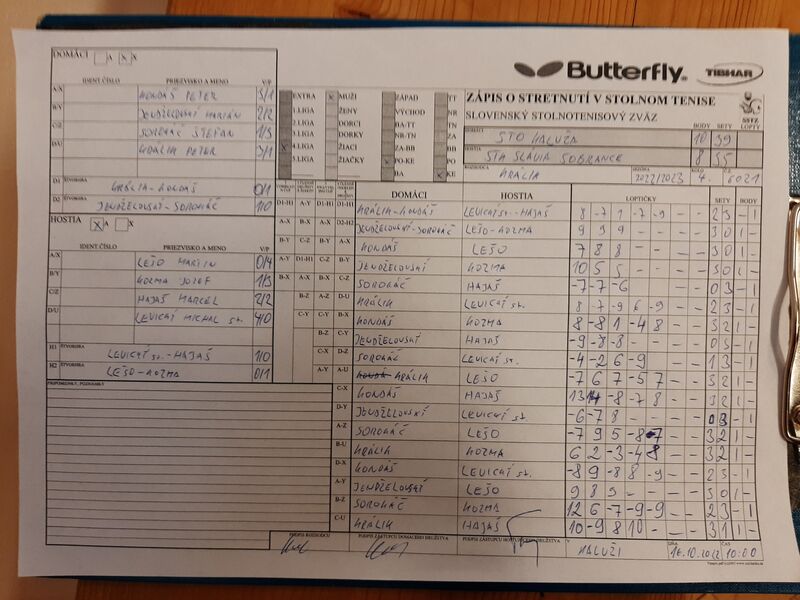 DOMÁCI A X
IDENT. ČÍSLO PRIEZVISKO A MENO V/P
A/X HONDÁŠ PETER 3/1
B/Y JENDŽELOVSKÝ MARIÁN 2/2
C/Z SOROKÁČ ŠTEFAN 1/3
D/U KRÁLIK PETER 3/1
D1 KRÁLIK-HONDÁŠ 0/1
D2 JENDŽELOVSKÝ-SOROKÁČ 1/0
HOSTIA A X
IDENT. ČÍSLO PRIEZVISKO A MENO V/P
A/X LEŠO MARTIN 0/4
B/Y KOZMA JOZEF 1/3
C/Z HAJAŠ MARCEL 2/2
D/U LEVICKÝ MICHAL st. 4/0
H1 ŠTVORHRA LEVICKÝ st.-HAJAŠ 1/0
H2 ŠTVORHRA LEŠO-KOZMA 0/1
PRIPOMIENKY, POZNÁMKY
Butterfly TIBHAR
EXTRA MUŽI ZÁPAD TT
1.LIGA ŽENY VÝCHOD NR
2.LIGA DORCI BA-TT TN
3.LIGA DORKY NR-TN ZA
4.LIGA ŽIACI ZA-BB BB
5.LIGA ŽIAČKY PO-KE PO
BA KE
ZÁPIS O STRETNUTÍ V STOLNOM TENISE
SLOVENSKÝ STOLNOTENISOVÝ ZVÄZ
SSTZ
BODY SETY LOPTY
STO KALUŽA 10 39
HOSTIA STK SLÁVIA SOBRANCE 8 35
ROZHODCA KRÁLIK 2022/2023 KOLO 4. 6021
DOMÁCI HOSTIA LOPTIČKY SETY BODY
KRÁLIK-HONDÁŠ LEVICKÝ st.-HAJAŠ 8 -7 1 -7 -9 - - 2 3 - 1
JENDŽELOVSKÝ-SOROKÁČ LEŠO-KOZMA 9 9 9 - - - - 3 0 1 -
HONDÁŠ LEŠO 7 8 8 - - - - 3 0 1 -
JENDŽELOVSKÝ KOZMA 10 5 5 - - - - 3 0 1 -
SOROKÁČ HAJAŠ -7 -7 -6 - - - - 0 3 - 1
KRÁLIK LEVICKÝ st. 8 7 -9 6 -9 - - 2 3 - 1
HONDÁŠ KOZMA 8 -8 1 -4 8 - - 3 2 1 -
JENDŽELOVSKÝ HAJAŠ -9 -8 -8 - - - - 0 3 - 1
SOROKÁČ LEVICKÝ st. -4 -2 6 -9 - - - 1 3 - 1
KRÁLIK LEŠO -7 6 7 -5 7 - - 3 2 1 -
HONDÁŠ HAJAŠ 13 14 -8 -7 8 - - 3 2 1 -
JENDŽELOVSKÝ LEVICKÝ st. -6 -7 8 - - - - 0 3 - 1
SOROKÁČ LEŠO -7 9 5 -8 7 - - 3 2 1 -
KRÁLIK KOZMA 6 2 -3 -4 8 - - 3 2 1 -
HONDÁŠ LEVICKÝ st. -8 9 -8 8 -9 - - 2 3 - 1
JENDŽELOVSKÝ LEŠO 9 8 9 - - - - 3 0 1 -
SOROKÁČ KOZMA 12 6 -7 -9 -9 - - 2 3 - 1
KRÁLIK HAJAŠ 10 -9 8 10 - - - 3 1 1 -
PODPIS ROZHODCU PODPIS ZÁSTUPCU DOMÁCEHO DRUŽSTVA PODPIS ZÁSTUPCU HOSŤUJÚCEHO DRUŽSTVA V KALUŽI DŇA 16.10.2022 ČAS 10:00